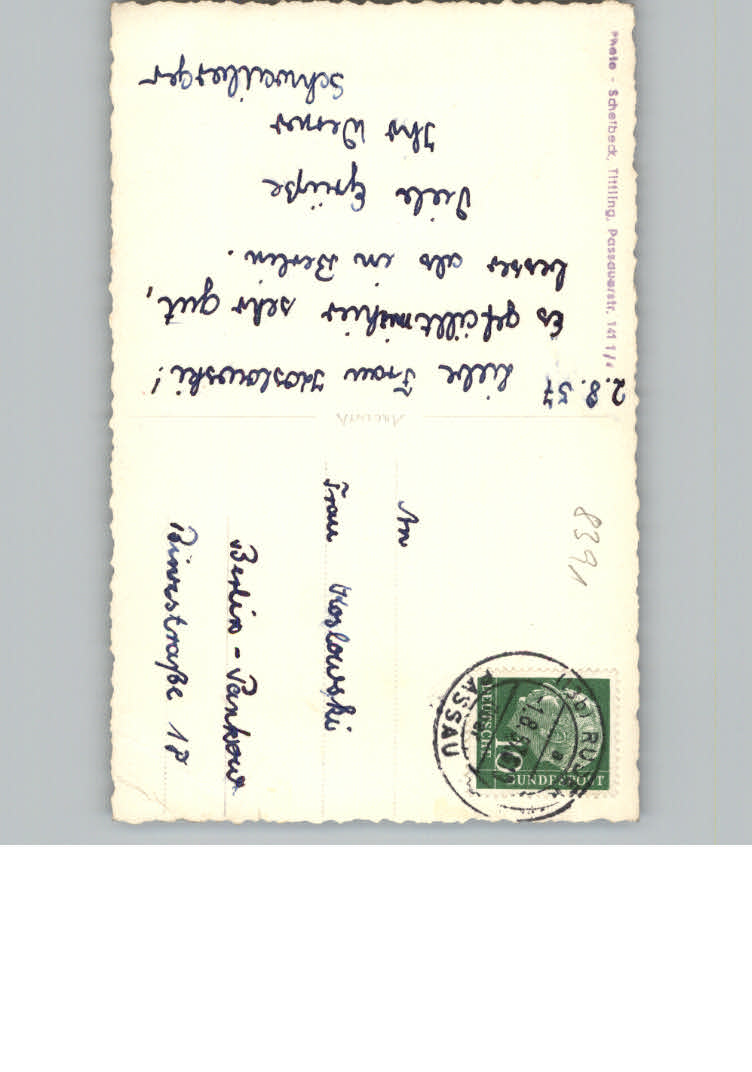 2.8.57
Liebe Frau Koslowski!
Es gefällt mir hier sehr gut,
besser als in Berlin.
Viele Grüße
Ihr Werner
Schweiberger
Photo - Schefbeck, Tittling, Passauerstr. 141 1/4
An
Frau Koslowski
Berlin-Pankow
Binzstraße 18
8391
DEUTSCHE
BUNDESPOST
10
PASSAU